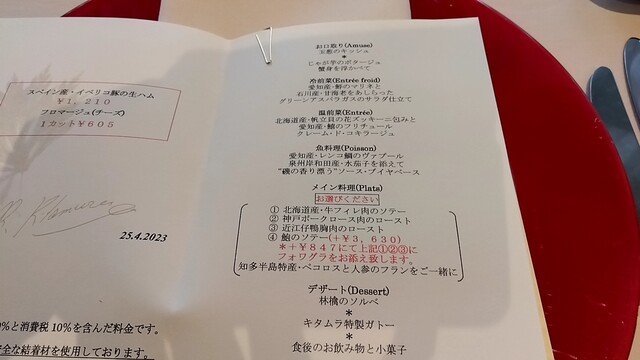 スペイン産・イベリコ豚の生ハム
￥１，２１０
フロマージュ(チーズ)
１カット￥６０５
25.4.2023
%と消費税 10%を含んだ料金です。
全な結着材を使用しております。
お口取り(Amuse)
玉葱のキッシュ
＊
じゃが芋のポタージュ
蟹身を浮かべて
冷前菜(Entrée froid)
愛知産・鯵のマリネと
石川産・甘海老をあしらった
グリーンアスパラガスのサラダ仕立て
温前菜(Entrée)
北海道産・帆立貝の花ズッキーニ包みと
愛知産・鱚のフリチュール
クレーム・ド・コキラージュ
魚料理(Poisson)
愛知産・レンコ鯛のヴァプール
泉州岸和田産・水茄子を添えて
“磯の香り漂う”ソース・ブイヤベース
メイン料理(Plats)
お選びください
① 北海道産・牛フィレ肉のソテー
② 神戸ポークロース肉のロースト
③ 近江仔鴨胸肉のロースト
④ 鮑のソテー(＋￥３，６３０)
＊＋￥８４７にて上記①②③に
フォワグラをお添え致します。
知多半島特産・ペコロスと人参のフランをご一緒に
デザート(Dessert)
林檎のソルベ
＊
キタムラ特製ガトー
＊
食後のお飲み物と小菓子